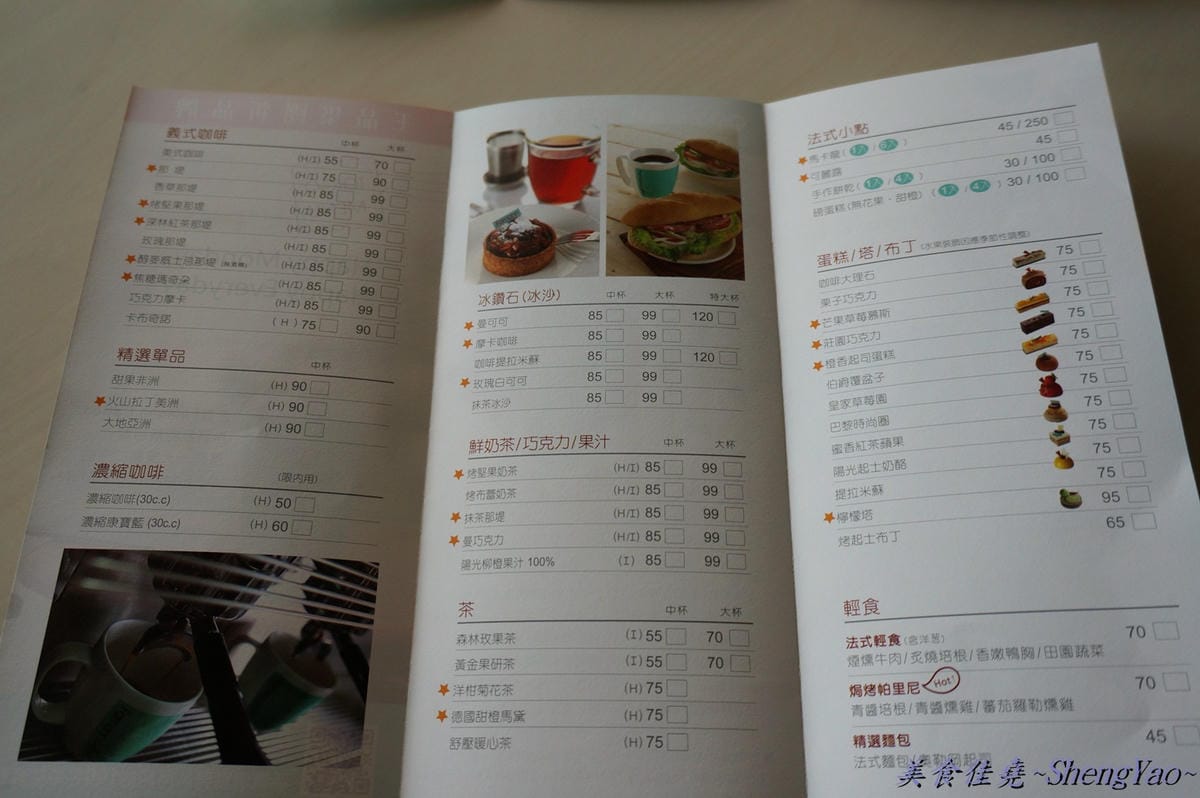 義式咖啡 中杯 大杯
美式咖啡 (H/I) 55 70
那堤 (H/I) 75 90
香草那堤 (H/I) 85 99
烤堅果那堤 (H/I) 85 99
深林紅茶那堤 (H/I) 85 99
玫瑰那堤 (H/I) 85 99
醇麥威士忌那堤 (H/I) 85 99
焦糖瑪奇朵 (H/I) 85 99
巧克力摩卡 (H/I) 85 99
卡布奇諾 (H) 75 90
精選單品 中杯
甜果非洲 (H) 90
火山拉丁美洲 (H) 90
大地亞洲 (H) 90
濃縮咖啡 (限內用)
濃縮咖啡(30c.c) (H) 50
濃縮康寶藍 (30c.c) (H) 60
冰鑽石(冰沙) 中杯 大杯 特大杯
曼可可 85 99 120
摩卡咖啡 85 99
咖啡提拉米蘇 85 99 120
玫瑰白可可 85 99
抹茶冰沙 85 99
鮮奶茶/巧克力/果汁 中杯 大杯
烤堅果奶茶 (H/I) 85 99
烤布蕾奶茶 (H/I) 85 99
抹茶那堤 (H/I) 85 99
曼巧克力 (H/I) 85 99
陽光柳橙果汁 100% (I) 85 99
茶 中杯 大杯
森林玫果茶 (I) 55 70
黃金果研茶 (I) 55 70
洋柑菊花茶 (H) 75
德國甜橙馬黛 (H) 75
舒壓暖心茶 (H) 75
法式小點
馬卡龍(1入/6入) 45 / 250
可麗露 45
手作餅乾(1入/4入) 30 / 100
磅蛋糕(無花果、甜橙) (1入/4入) 30 / 100
蛋糕/塔/布丁(水果裝飾因應季節性調整)
咖啡大理石 75
栗子巧克力 75
芒果草莓慕斯 75
莊園巧克力 75
橙香起司蛋糕 75
伯爵覆盆子 75
皇家草莓園 75
巴黎時尚圈 75
蜜香紅茶蘋果 75
陽光起士奶酪 75
提拉米蘇 75
檸檬塔 95
烤起士布丁 65
輕食
法式輕食(含洋蔥) 70
煙燻牛肉/炙燒培根/香嫩鴨胸/田園蔬菜
焗烤帕里尼 Hot! 70
青醬培根/青醬燻雞/蕃茄羅勒燻雞
精選麵包 45
法式麵包/奧勒岡起司
美食佳堯~ShengYao~